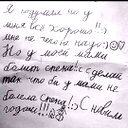 Я подумала что у
меня всё хорошо!!:)
мне не чего не надо:)
Но у моей мамы
болит спена!:( сделай
так что бы у мамы не
болела спена!:) С новым
годом!!!:)